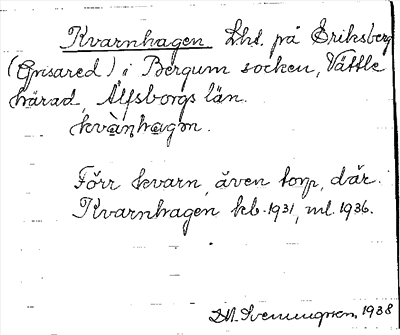 Kvarnhagen Lht. på Eriksberg
(Grisared) i Bergum socken, Vättle
härad, Älfsborgs län.
kvànhagm.
Förr kvarn, även torp, där.
Kvarnhagen kb. 1931, ml. 1936.
1938